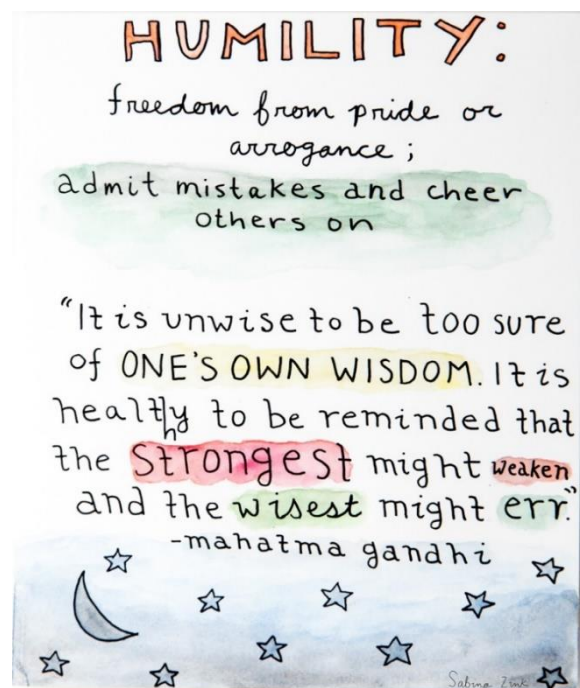 HUMILITY:
freedom from pride or
arrogance;
admit mistakes and cheer
others on
"It is unwise to be too sure
of ONE'S OWN WISDOM. It is
healthy to be reminded that
the strongest might weaken
and the wisest might err."
-mahatma gandhi
Sabina Zink